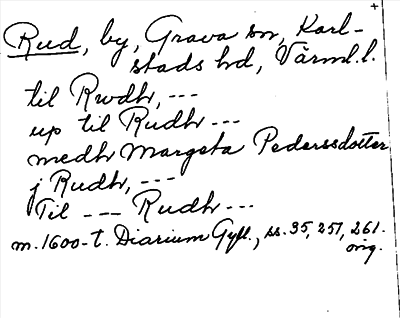 Rud, by, Grava sn, Karl-
stads hd, Värml.l.
til Rwdh, ---
up til Rudh ---
medh Margeta Pederssdotter
j Rudh, ---
Til --- Rudh ---
m. 1600-t. Diarium Gyll., ss. 35, 257, 261.
orig.